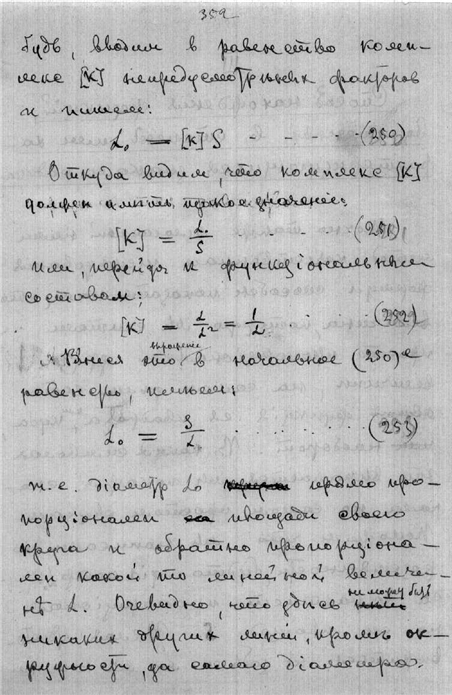 359
будь, вводим в равенство комп-
лекс [К] непредусмотренных факторов
и пишем:
L₀ = [К] S - - - - (250)
Откуда видим, что комплекс [К]
должен иметь такое значение:
[К] = L₀/S · · · (251)
или, перейдя к функціональным
составам:
[К] = L/L² = 1/L · · (252)
Внеся это выражение в начальное (250)е
равенство, пишем:
L₀ = S/L · · · · · · · · (253)
т.е. діаметр L₀ прямо про-
порціонален площади своего
круга и обратно пропорціона-
лен какой то линейной величи-
нѣ L. Очевидно, что здѣсь не может быть
никаких других линій, кромѣ ок-
ружности, да самаго діаметра.